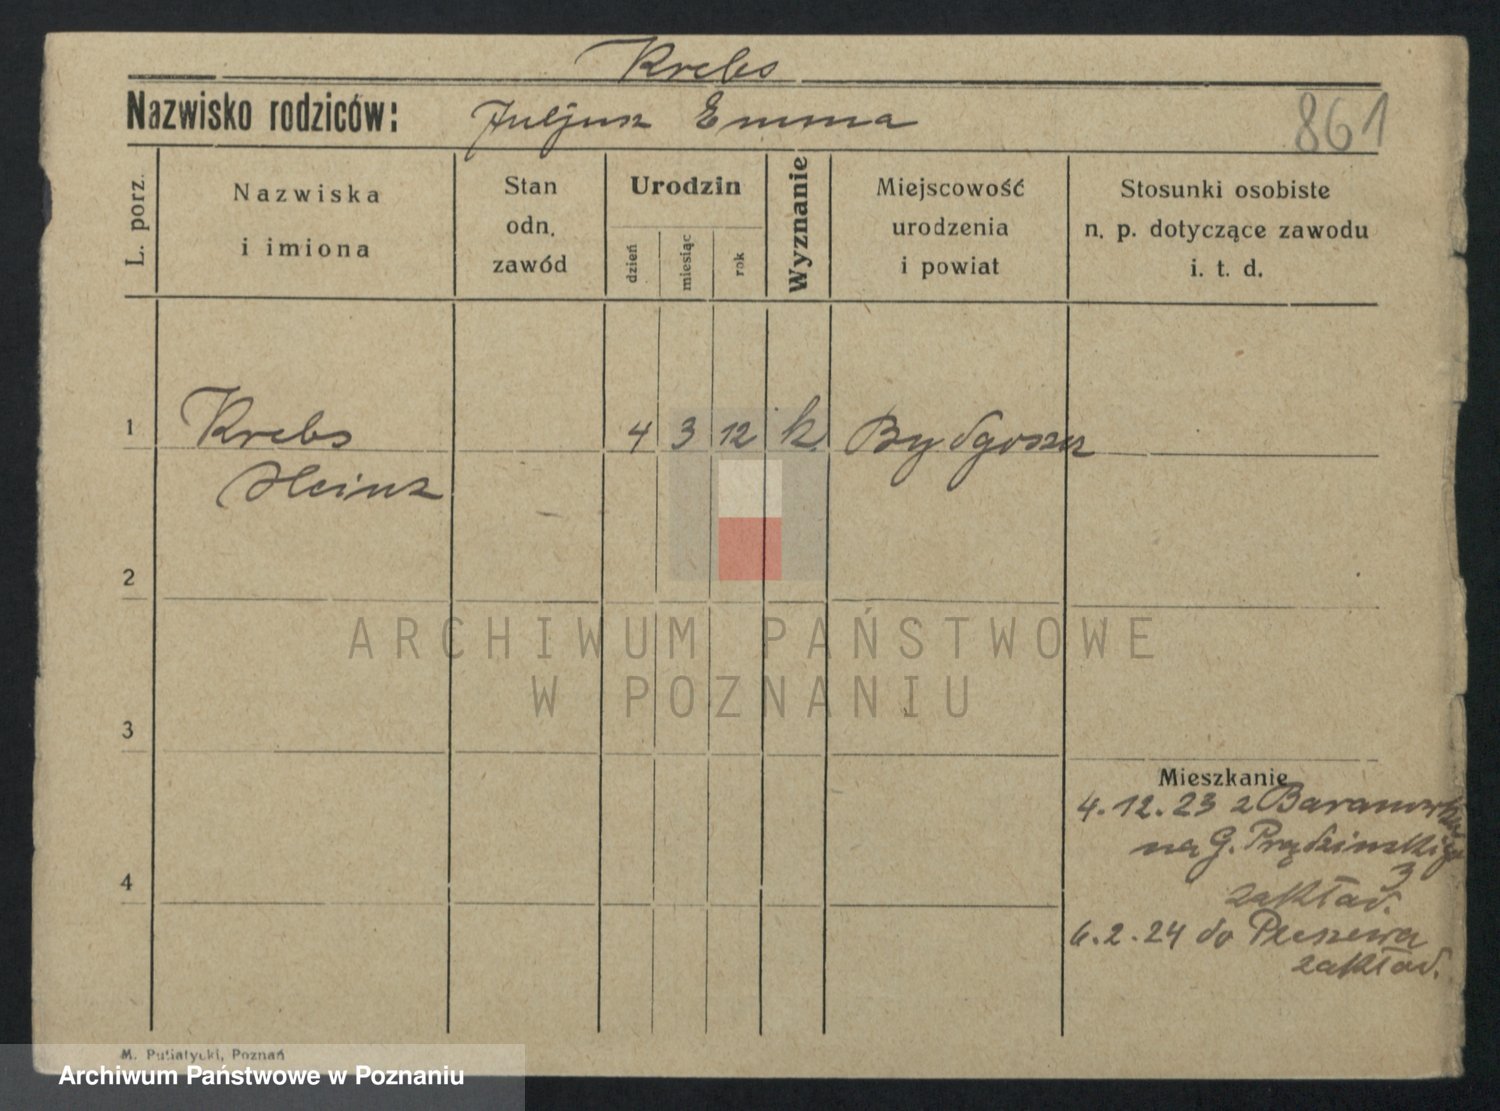 Krebs
Nazwisko rodziców: Juljusz Emma
861
L. porz.
Nazwiska
i imiona
Stan
odn.
zawód
Urodzin
dzień
miesiąc
rok
Wyznanie
Miejscowość
urodzenia
i powiat
Stosunki osobiste
n. p. dotyczące zawodu
i. t. d.
1 Krebs 4 3 12 k. Bydgoszcz
Heinz
2
ARCHIWUM PAŃSTWOWE
W POZNANIU
3
Mieszkanie
4.12.23 z
na G. Prądzinskiego
3
zakład.
4
6.2.24 do Pleszewa
zakład.
M. Putiatycki, Poznań
Archiwum Państwowe w Poznaniu